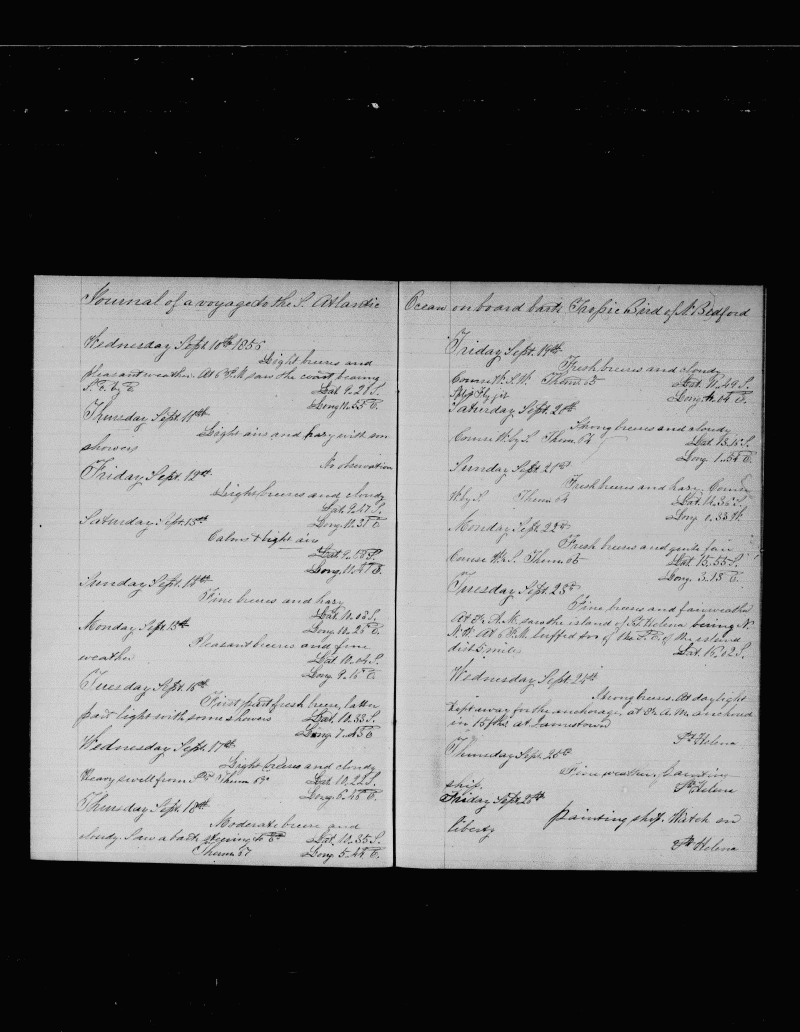 Journal of a voyage to the S. Atlantic
Wednesday Sept. 10th 1856
Light breeses and
pleasant weather. At 6 P.M. saw the coast bearing
Lat. 9.21 S.
Long. 11.55 E.
Thursday Sept. 11th
Light airs and hazy with some
showers
No observation
Friday Sept. 12th
Light breeses and cloudy
Lat. 9.47 S.
Long. 11.31 E.
Saturday Sept. 13th
Calms & light airs
Lat. 9.18 S.
Long. 11.41 E.
Sunday Sept. 14th
Fine breeses and hazy
Lat. 10.03 S.
Long. 10.25 E.
Monday Sept. 15th
Pleasant breeses and fine
weather
Lat. 10.04 S.
Long. 9.15 E.
Tuesday Sept. 16th
First part fresh breese, latter
part light with some showers Lat. 10.33 S.
Long. 7.45 E.
Wednesday Sept. 17th
Light breeses and cloudy
Heavy swell from Lat. 10.22 S.
Long. 6.45 E.
Thursday Sept. 18th
Moderate breese and
cloudy. Saw a bark steering to Lat. 10.35 S.
Therm. 67 Long. 5.44 E.
Ocean on board bark Tropic Bird of N. Bedford
Friday Sept. 19th
Fresh breeses and cloudy
Course W.S.W. Therm 65 Lat. 11.49 S.
Saturday Sept. 20th
Strong breeses and cloudy
Course W. by S. Therm. 64 Lat. 13.15 S.
Long. 1.54 E.
Sunday Sept. 21st
Fresh breeses and hazy. Course
W. by S. Therm 64 Lat. 14.36 S.
Long. 0.33 W.
Monday Sept. 22d
Fresh breeses and quite fair
Course W.S. Therm. 65 Lat. 15.55 S.
Long. 3.13 E.
Tuesday Sept. 23d
Fine breeses and fair weather
At A.M. saw the island of St. Helena bering N.
N.W. At 6 P.M. luffed of the S.E. of the island
dist 5 miles Lat. 16.02 S.
Wednesday Sept. 24th
Strong breeses. At daylight
kept away for the anchorage, at A.M. anchored
in 15 fths at Jamestown
St. Helena
Thursday Sept. 25th
Fine weather, painting
ship. St. Helena
Friday Sept. 26th
painting ship. Watch on
liberty
St. Helena